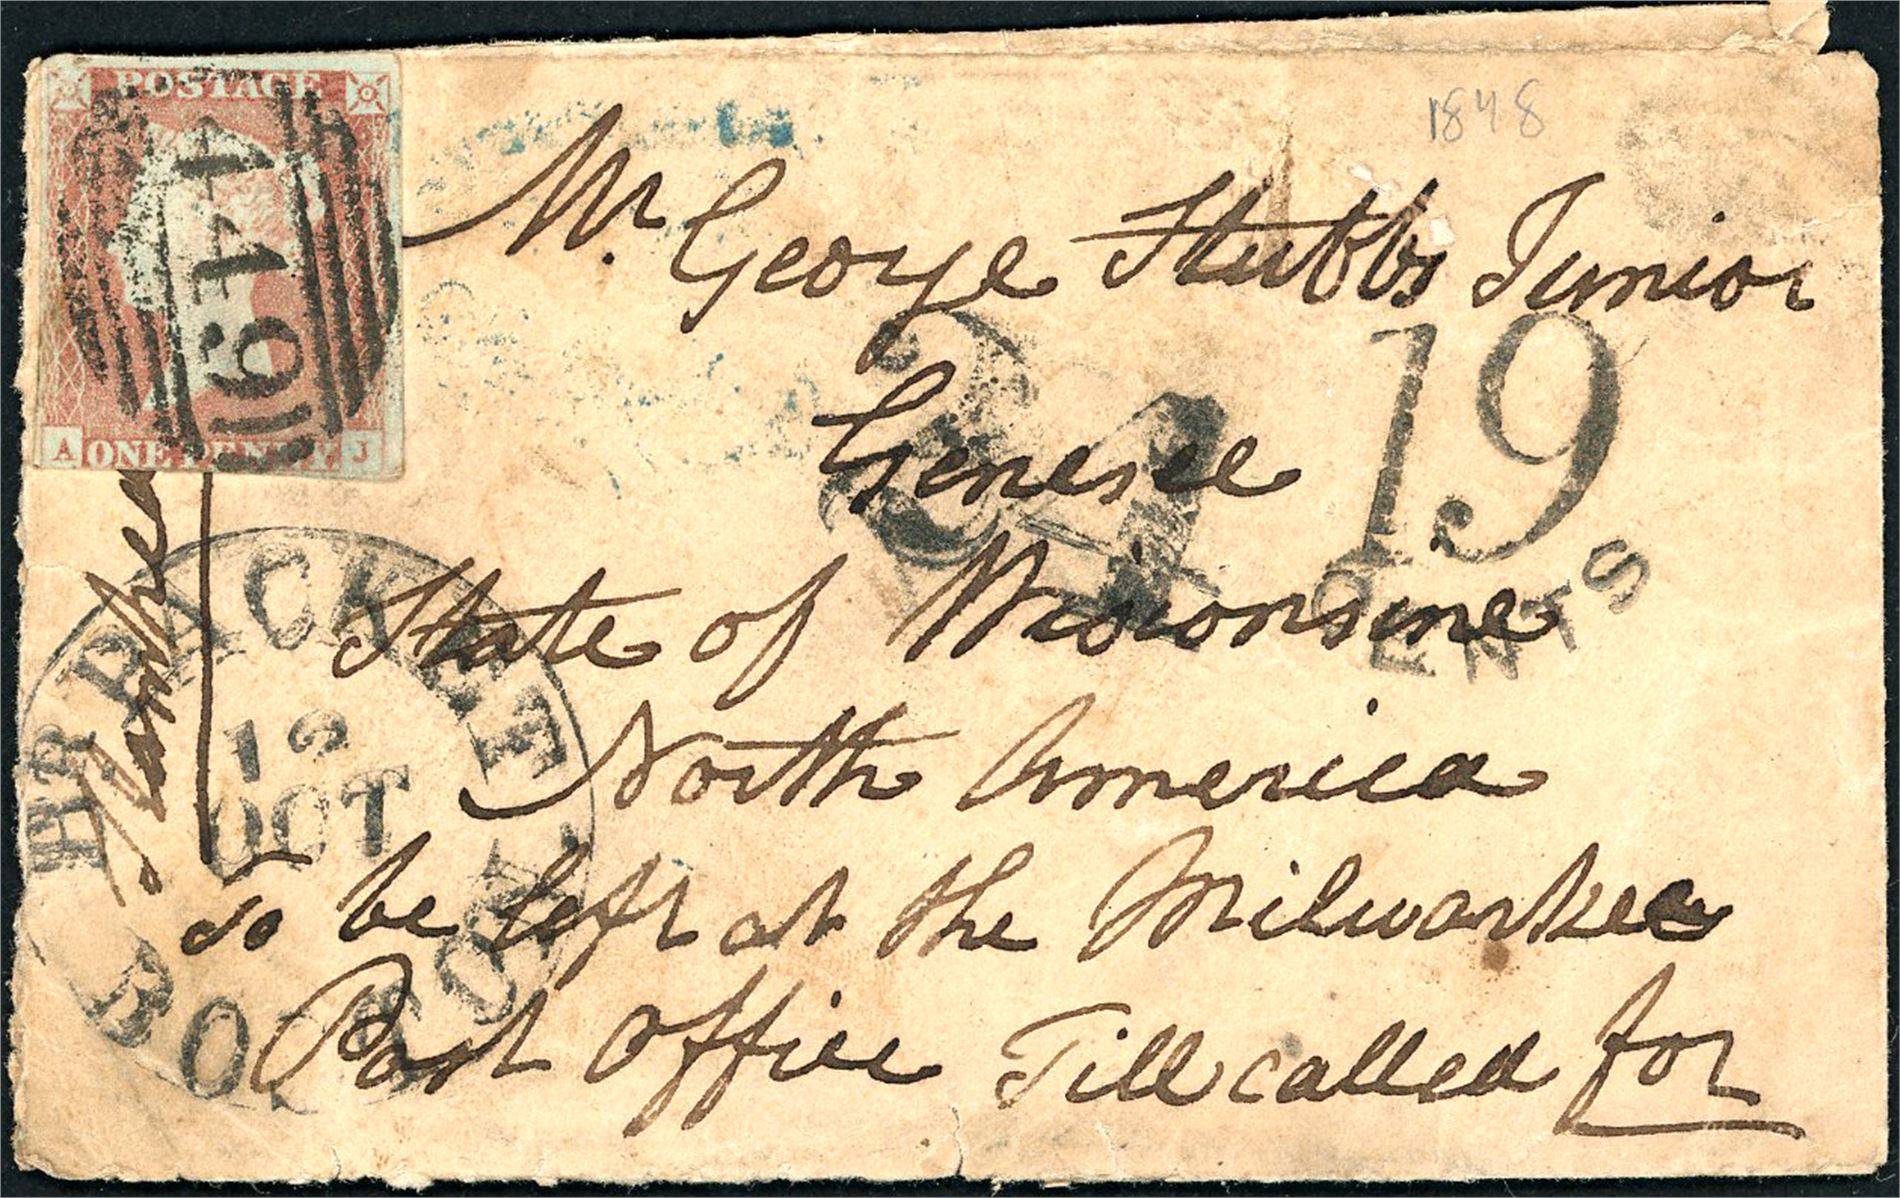 POSTAGE
449
A ONE PENNY J
1848
Mr. George Stubbs Junior
Genesee
State of Wisconsine
North America
To be left at the Milwarkee
Post Office Till called for
BR PACKET
12
OCT
BOSTON
24
19
CENTS